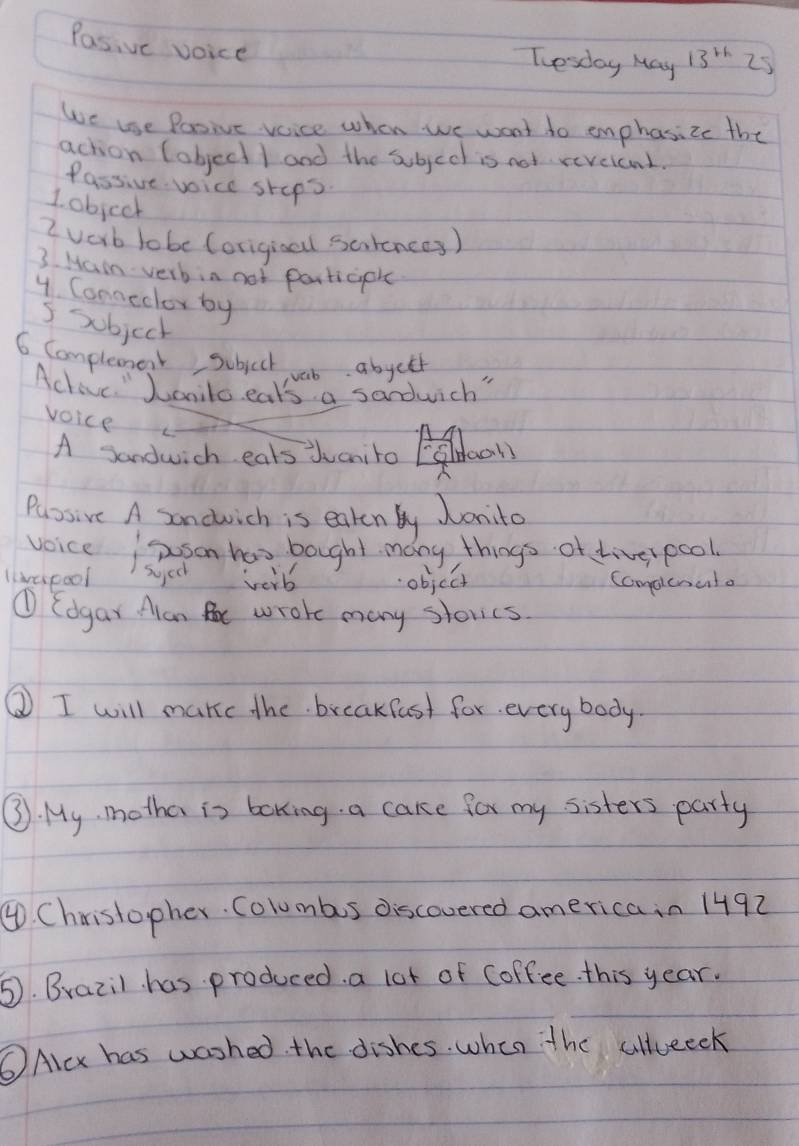 Pasive voice
Tuesday May 13th 25
We use Pasive voice when we want to emphasize the
action (object) and the subject is not revelent.
Passive voice steps.
1. object
2 verb to be (original sentences)
3. Main verb in past participle
4. Connector by
5 Subject
6 Complement
Subject verb abyect
Active "Juanito eat's a sandwich"
voice
A sandwich eats Juanito
Passive A sandwich is eaten by Juanito
voice
Susan has bought many things at Liverpool.
liverpool suject verb object Complemento
① Edgar Alan Poe wrote many stories.
② I will make the breakfast for everybody.
③. My mother is baking a cake for my sisters party
④. Christopher Columbus discovered america in 1492
⑤. Brazil has produced a lot of Coffee this year.
⑥ Alex has washed the dishes when the